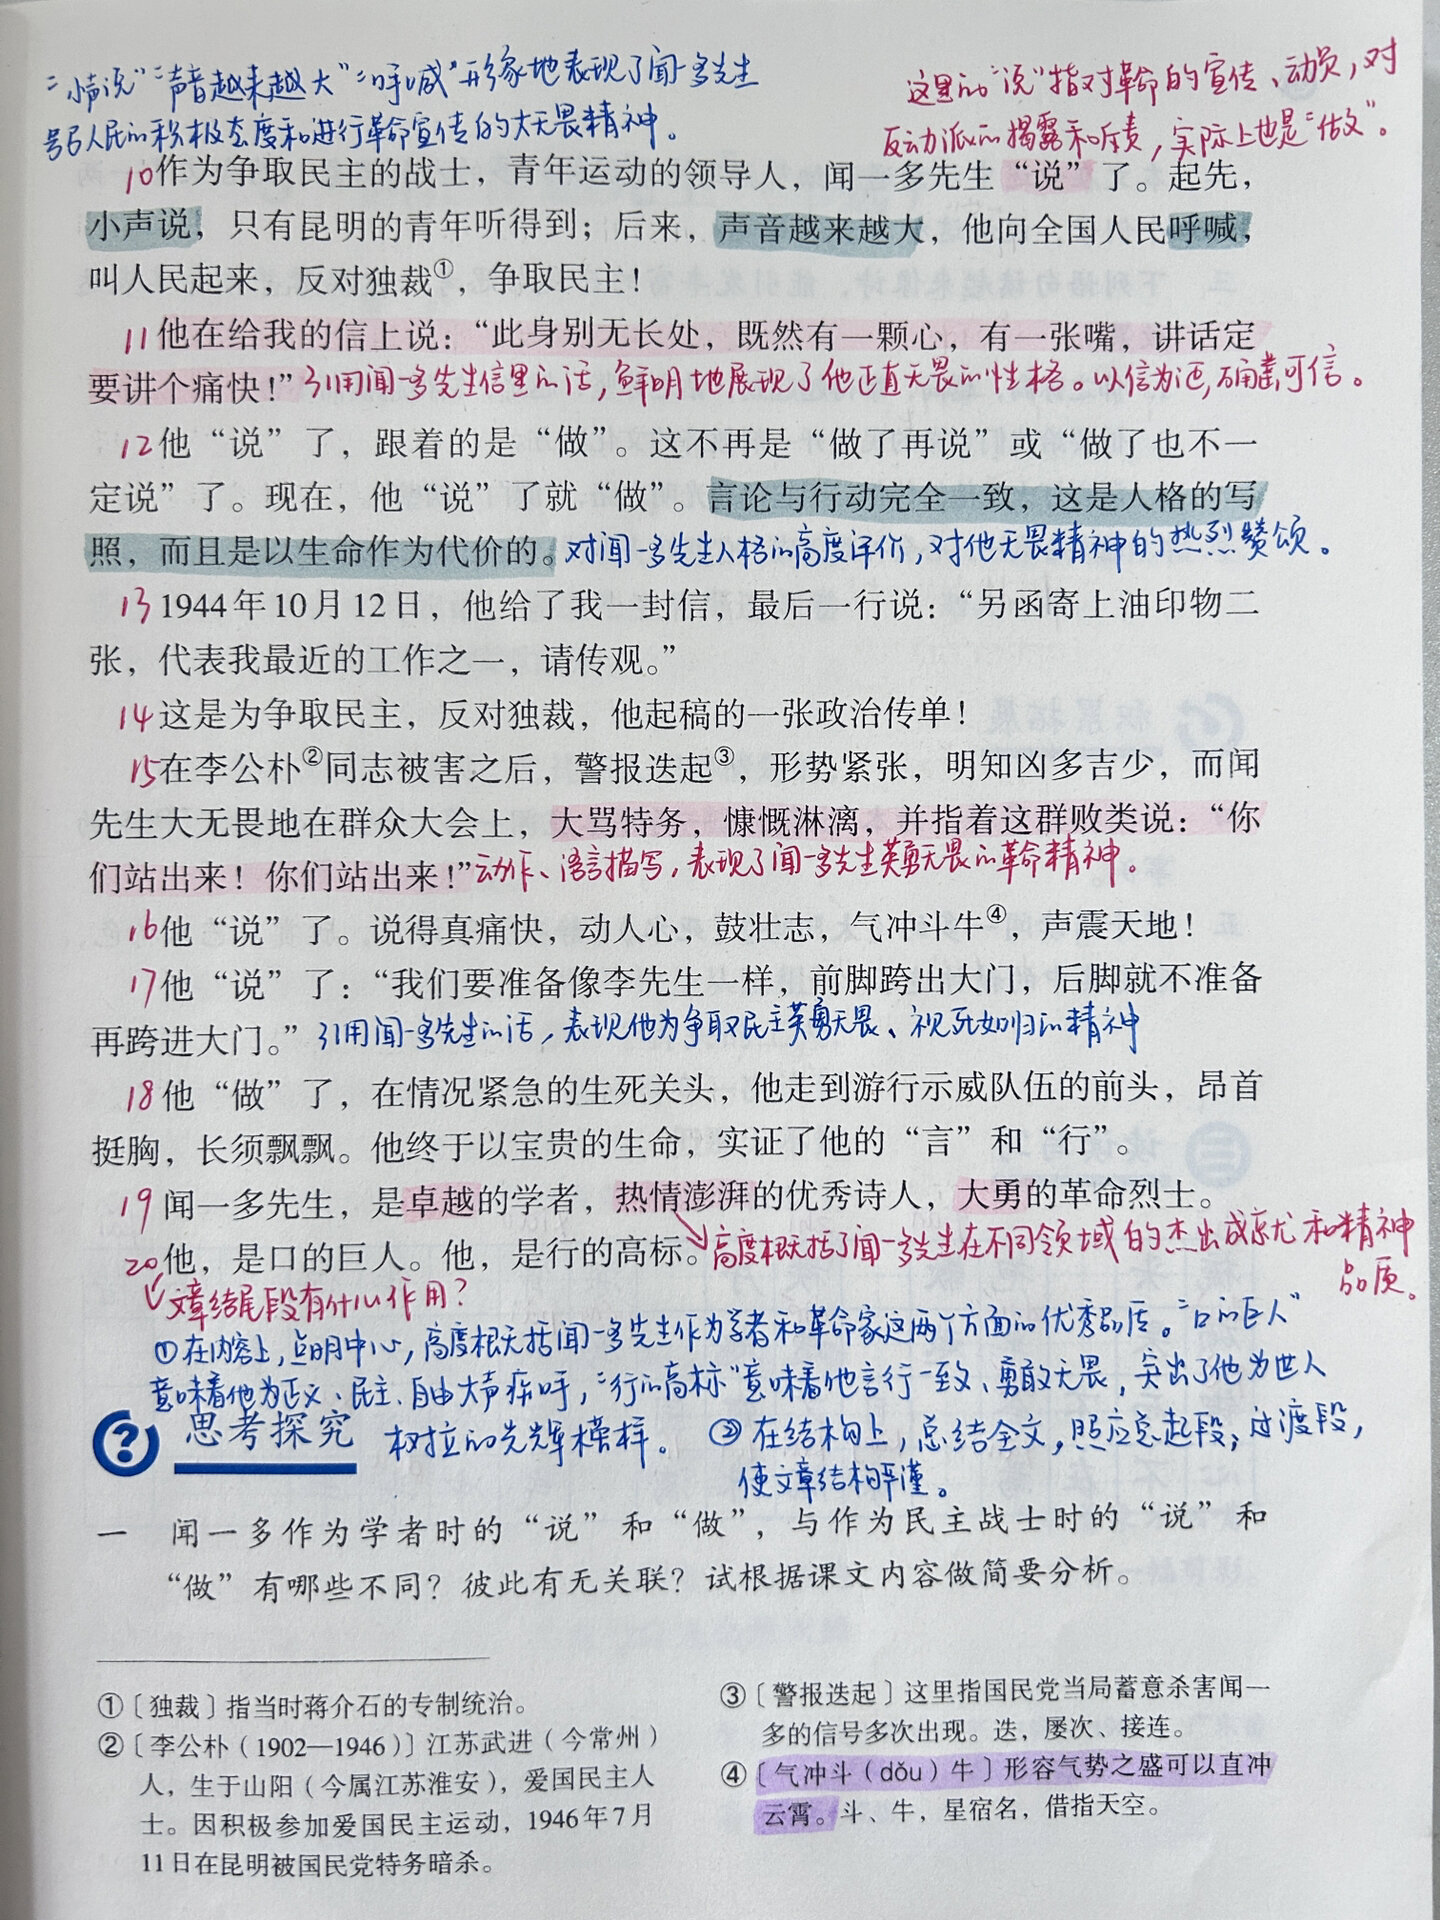 “小声说”“声音越来越大”“呼喊”形象地表现了闻一多先生
号召人民的积极态度和进行革命宣传的大无畏精神。
这里的“说”指对革命的宣传、动员，对
反动派的揭露和斥责，实际上也是“做”。
10作为争取民主的战士，青年运动的领导人，闻一多先生“说”了。起先，
小声说，只有昆明的青年听得到；后来，声音越来越大，他向全国人民呼喊，
叫人民起来，反对独裁①，争取民主！
11他在给我的信上说：“此身别无长处，既然有一颗心，有一张嘴，讲话定
要讲个痛快！”引用闻一多先生信里的话，鲜明地展现了他正直无畏的性格。以信为证，确凿可信。
12他“说”了，跟着的是“做”。这不再是“做了再说”或“做了也不一
定说”了。现在，他“说”了就“做”。言论与行动完全一致，这是人格的写
照，而且是以生命作为代价的。对闻一多先生人格的高度评价，对他无畏精神的热烈赞颂。
13 1944年10月12日，他给了我一封信，最后一行说：“另函寄上油印物二
张，代表我最近的工作之一，请传观。”
14这是为争取民主，反对独裁，他起稿的一张政治传单！
15在李公朴②同志被害之后，警报迭起③，形势紧张，明知凶多吉少，而闻
先生大无畏地在群众大会上，大骂特务，慷慨淋漓，并指着这群败类说：“你
们站出来！你们站出来！”动作、语言描写，表现了闻一多先生英勇无畏的革命精神。
16他“说”了。说得真痛快，动人心，鼓壮志，气冲斗牛④，声震天地！
17他“说”了：“我们要准备像李先生一样，前脚跨出大门，后脚就不准备
再跨进大门。”引用闻一多先生的话，表现他为争取民主英勇无畏、视死如归的精神
18他“做”了，在情况紧急的生死关头，他走到游行示威队伍的前头，昂首
挺胸，长须飘飘。他终于以宝贵的生命，实证了他的“言”和“行”。
19闻一多先生，是卓越的学者，热情澎湃的优秀诗人，大勇的革命烈士。
20他，是口的巨人。他，是行的高标。高度概括了闻一多先生在不同领域的杰出成就和精神
品质。
文章结尾段有什么作用？
①在内容上，点明中心，高度概括闻一多先生作为学者和革命家这两个方面的优秀品质。“口的巨人”
意味着他为正义、民主、自由大声疾呼，“行的高标”意味着他言行一致、勇敢无畏，突出了他为世人
树立的光辉榜样。 ②在结构上，总结全文，照应总起段，过渡段，
使文章结构严谨。
思考探究
一 闻一多作为学者时的“说”和“做”，与作为民主战士时的“说”和
“做”有哪些不同？彼此有无关联？试根据课文内容做简要分析。
①〔独裁〕指当时蒋介石的专制统治。
②〔李公朴（1902—1946）〕江苏武进（今常州）
人，生于山阳（今属江苏淮安），爱国民主人
士。因积极参加爱国民主运动，1946年7月
11日在昆明被国民党特务暗杀。
③〔警报迭起〕这里指国民党当局蓄意杀害闻一
多的信号多次出现。迭，屡次、接连。
④〔气冲斗（dǒu）牛〕形容气势之盛可以直冲
云霄。斗、牛，星宿名，借指天空。